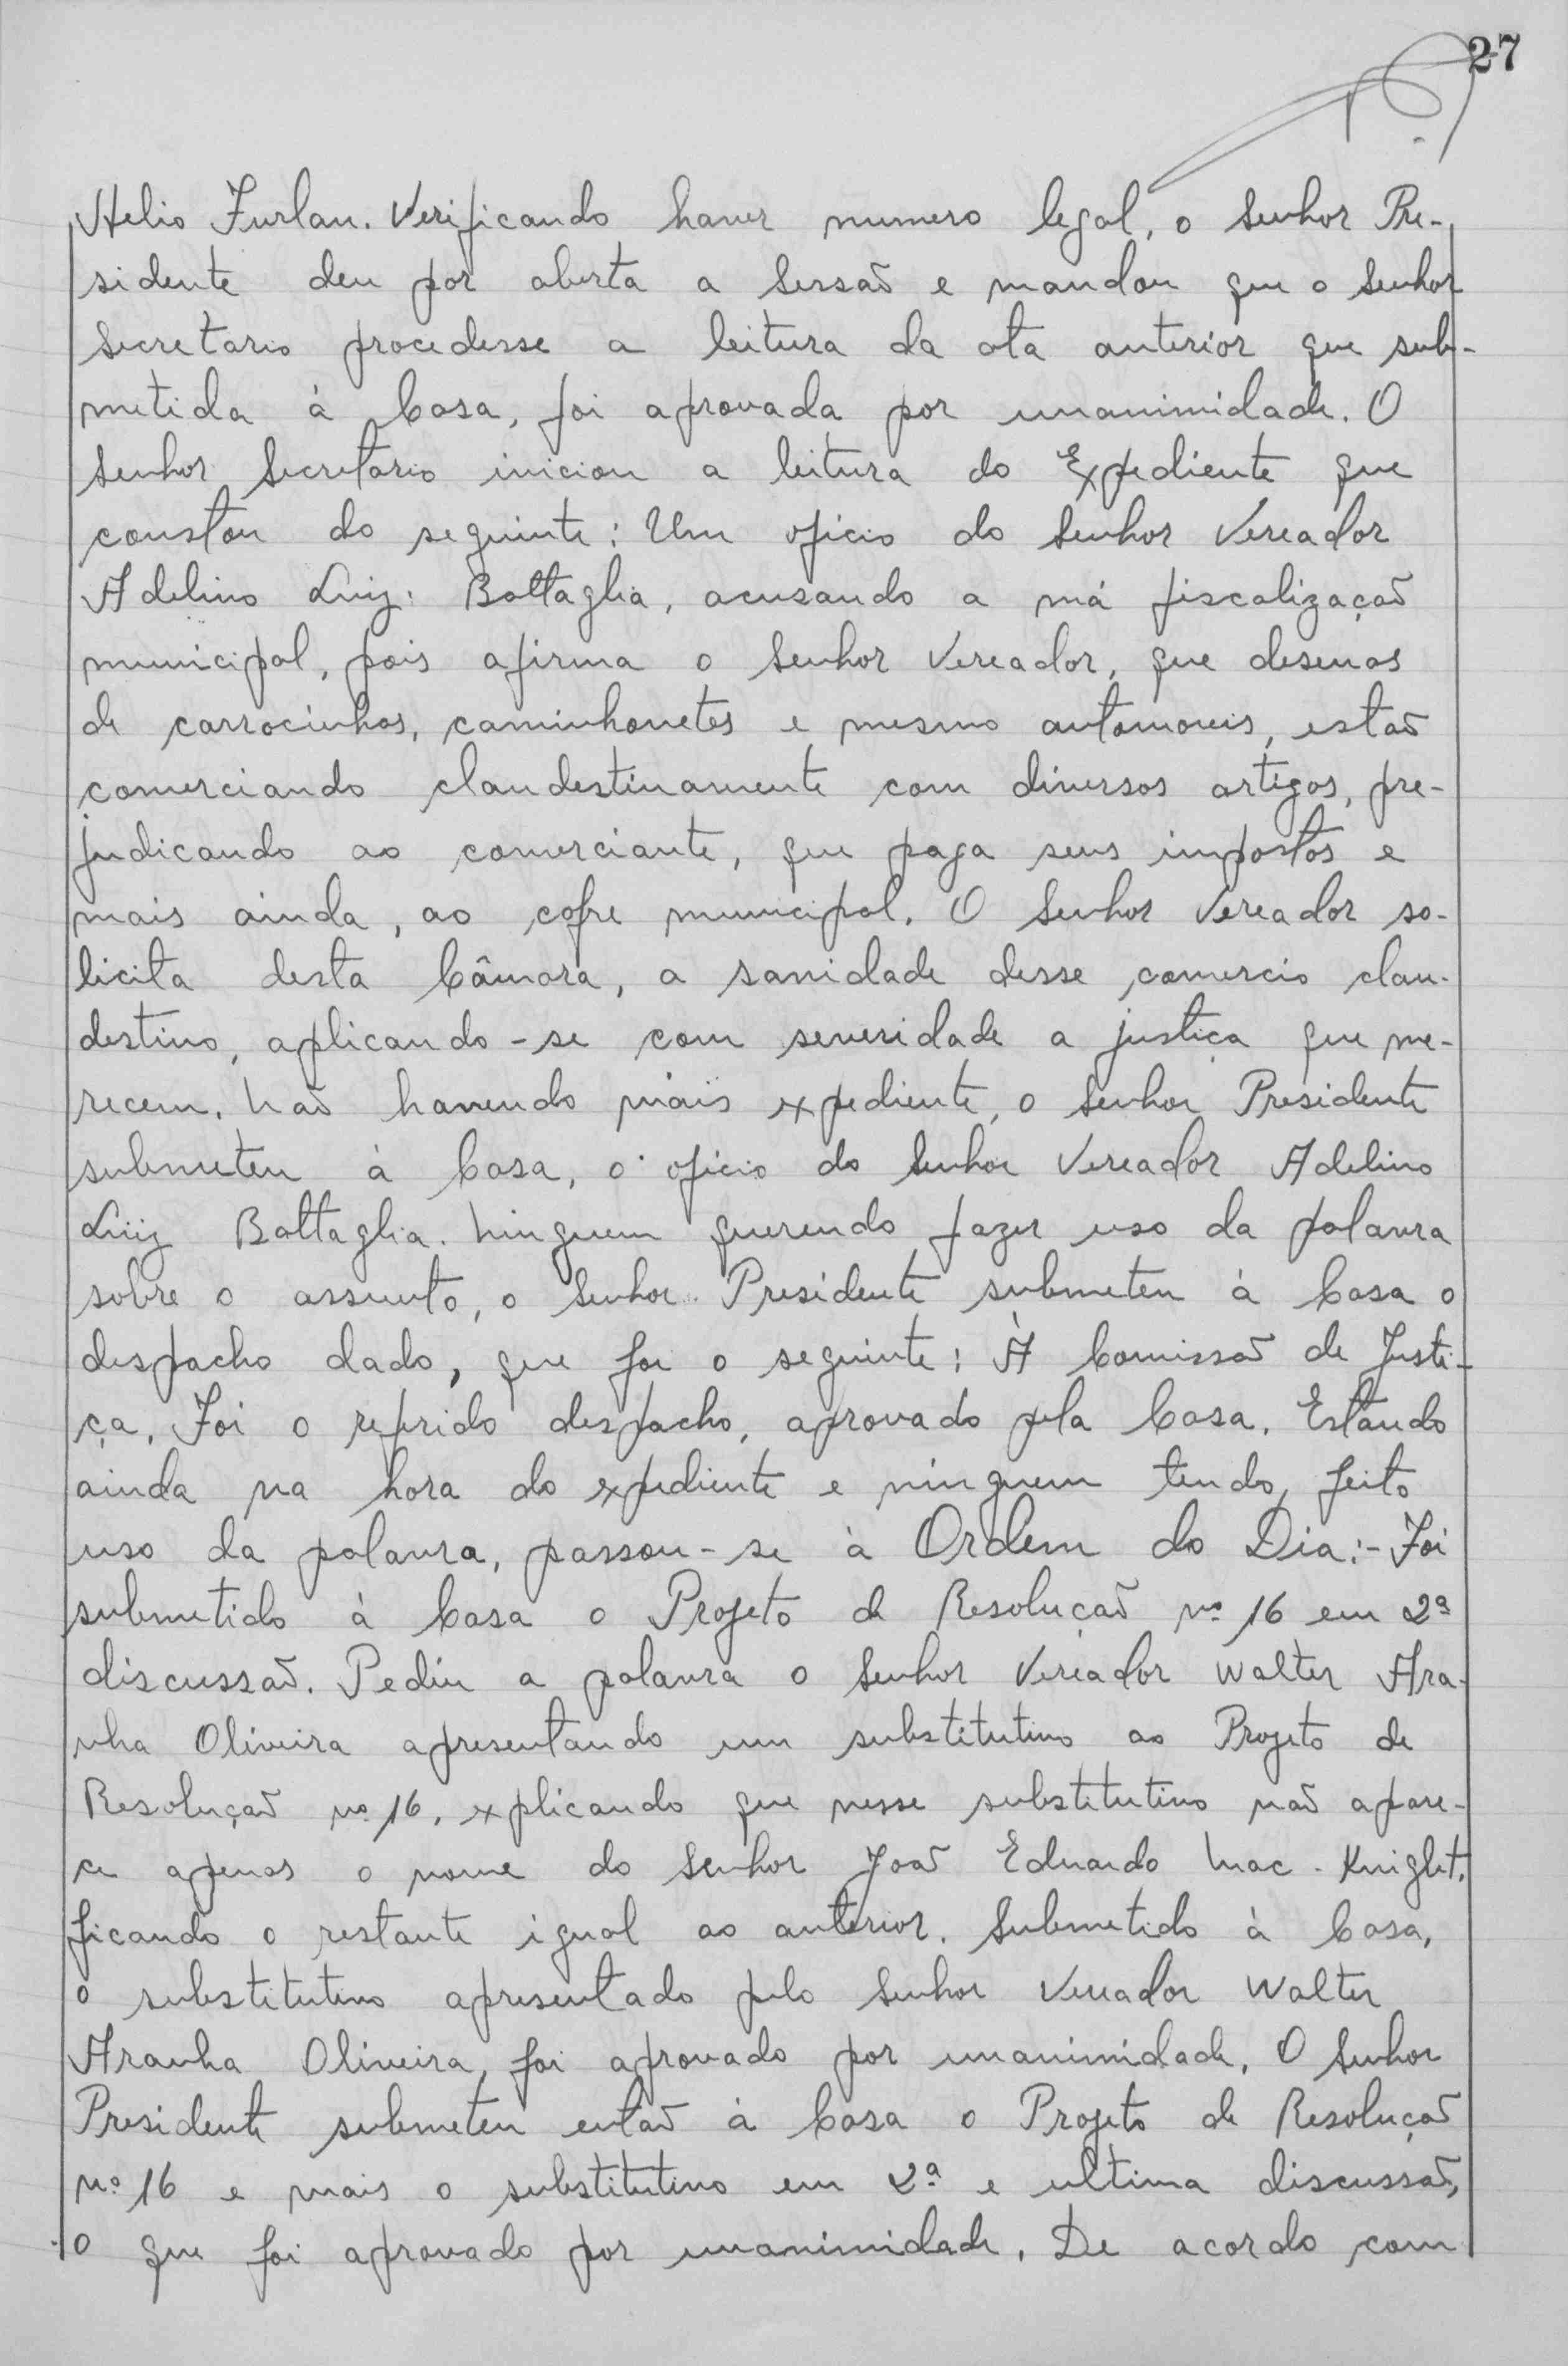 27
Helio Furlan. Verificando haver numero legal, o Senhor Pre-
sidente deu por aberta a Sessão e mandou que o Senhor
Secretario procedesse a leitura da ata anterior que sub-
metida à Casa, foi aprovada por unanimidade. O
Senhor Secretario iniciou a leitura do Expediente que
constou do seguinte: Um oficio do Senhor Vereador
Adelino Luiz Battaglia, acusando a má fiscalização
municipal, pois afirma o Senhor Vereador, que desenas
de carrocinhas, caminhonetes e mesmo automoveis, estão
comerciando clandestinamente com diversos artigos, pre-
judicando ao comerciante, que paga seus impostos e
mais ainda, ao cofre municipal. O Senhor Vereador so-
licita desta Câmara, a sanidade desse comercio clan-
destino, aplicando-se com severidade a justiça que me-
recem. Não havendo mais expediente, o Senhor Presidente
submeteu à Casa, o oficio do Senhor Vereador Adelino
Luiz Battaglia. Ninguem querendo fazer uso da palavra
sobre o assunto, o Senhor Presidente submeteu à Casa o
despacho dado, que foi o seguinte: À Comissão de Justi-
ça. Foi o referido despacho, aprovado pela Casa. Estando
ainda na hora do expediente e ninguem tendo feito
uso da palavra, passou-se à Ordem do Dia:- Foi
submetido à Casa o Projeto de Resolução nº 16 em 2ª
discussão. Pediu a palavra o Senhor Vereador Walter Ara-
nha Oliveira apresentando um substitutivo ao Projeto de
Resolução nº 16, explicando que nesse substitutivo não apare-
ce apenas o nome do Senhor João Eduardo Mac-Knight,
ficando o restante igual ao anterior. Submetido à Casa,
o substitutivo apresentado pelo Senhor Vereador Walter
Aranha Oliveira, foi aprovado por unanimidade. O Senhor
Presidente submeteu então à Casa o Projeto de Resolução
nº 16 e mais o substitutivo em 2ª e ultima discussão,
o que foi aprovado por unanimidade. De acordo com